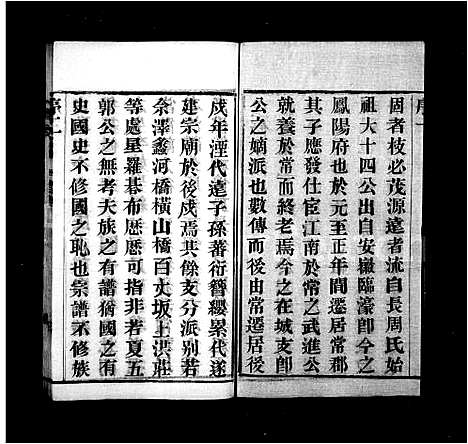 序
周者枝必茂源遠者流自長周氏始
祖大十四公出自安徽臨濠卽今之
鳳陽府也於元至正年間遷居常郡
其子應發仕宦江南於常之武進公
就養於常而終老焉今之在城支卽
公之嫡派也數傳而後由常遷居後
戍年湮代遠子孫蕃衍簪纓累代遂
建宗廟於後戍焉其餘支分派別若
余澤蠡河橋橫山橋百丈坂上洪莊
等處星羅碁布歷歷可指非若夏五
郭公之無考夫族之有譜猶國之有
史國史不修國之恥也宗譜不修族
序二